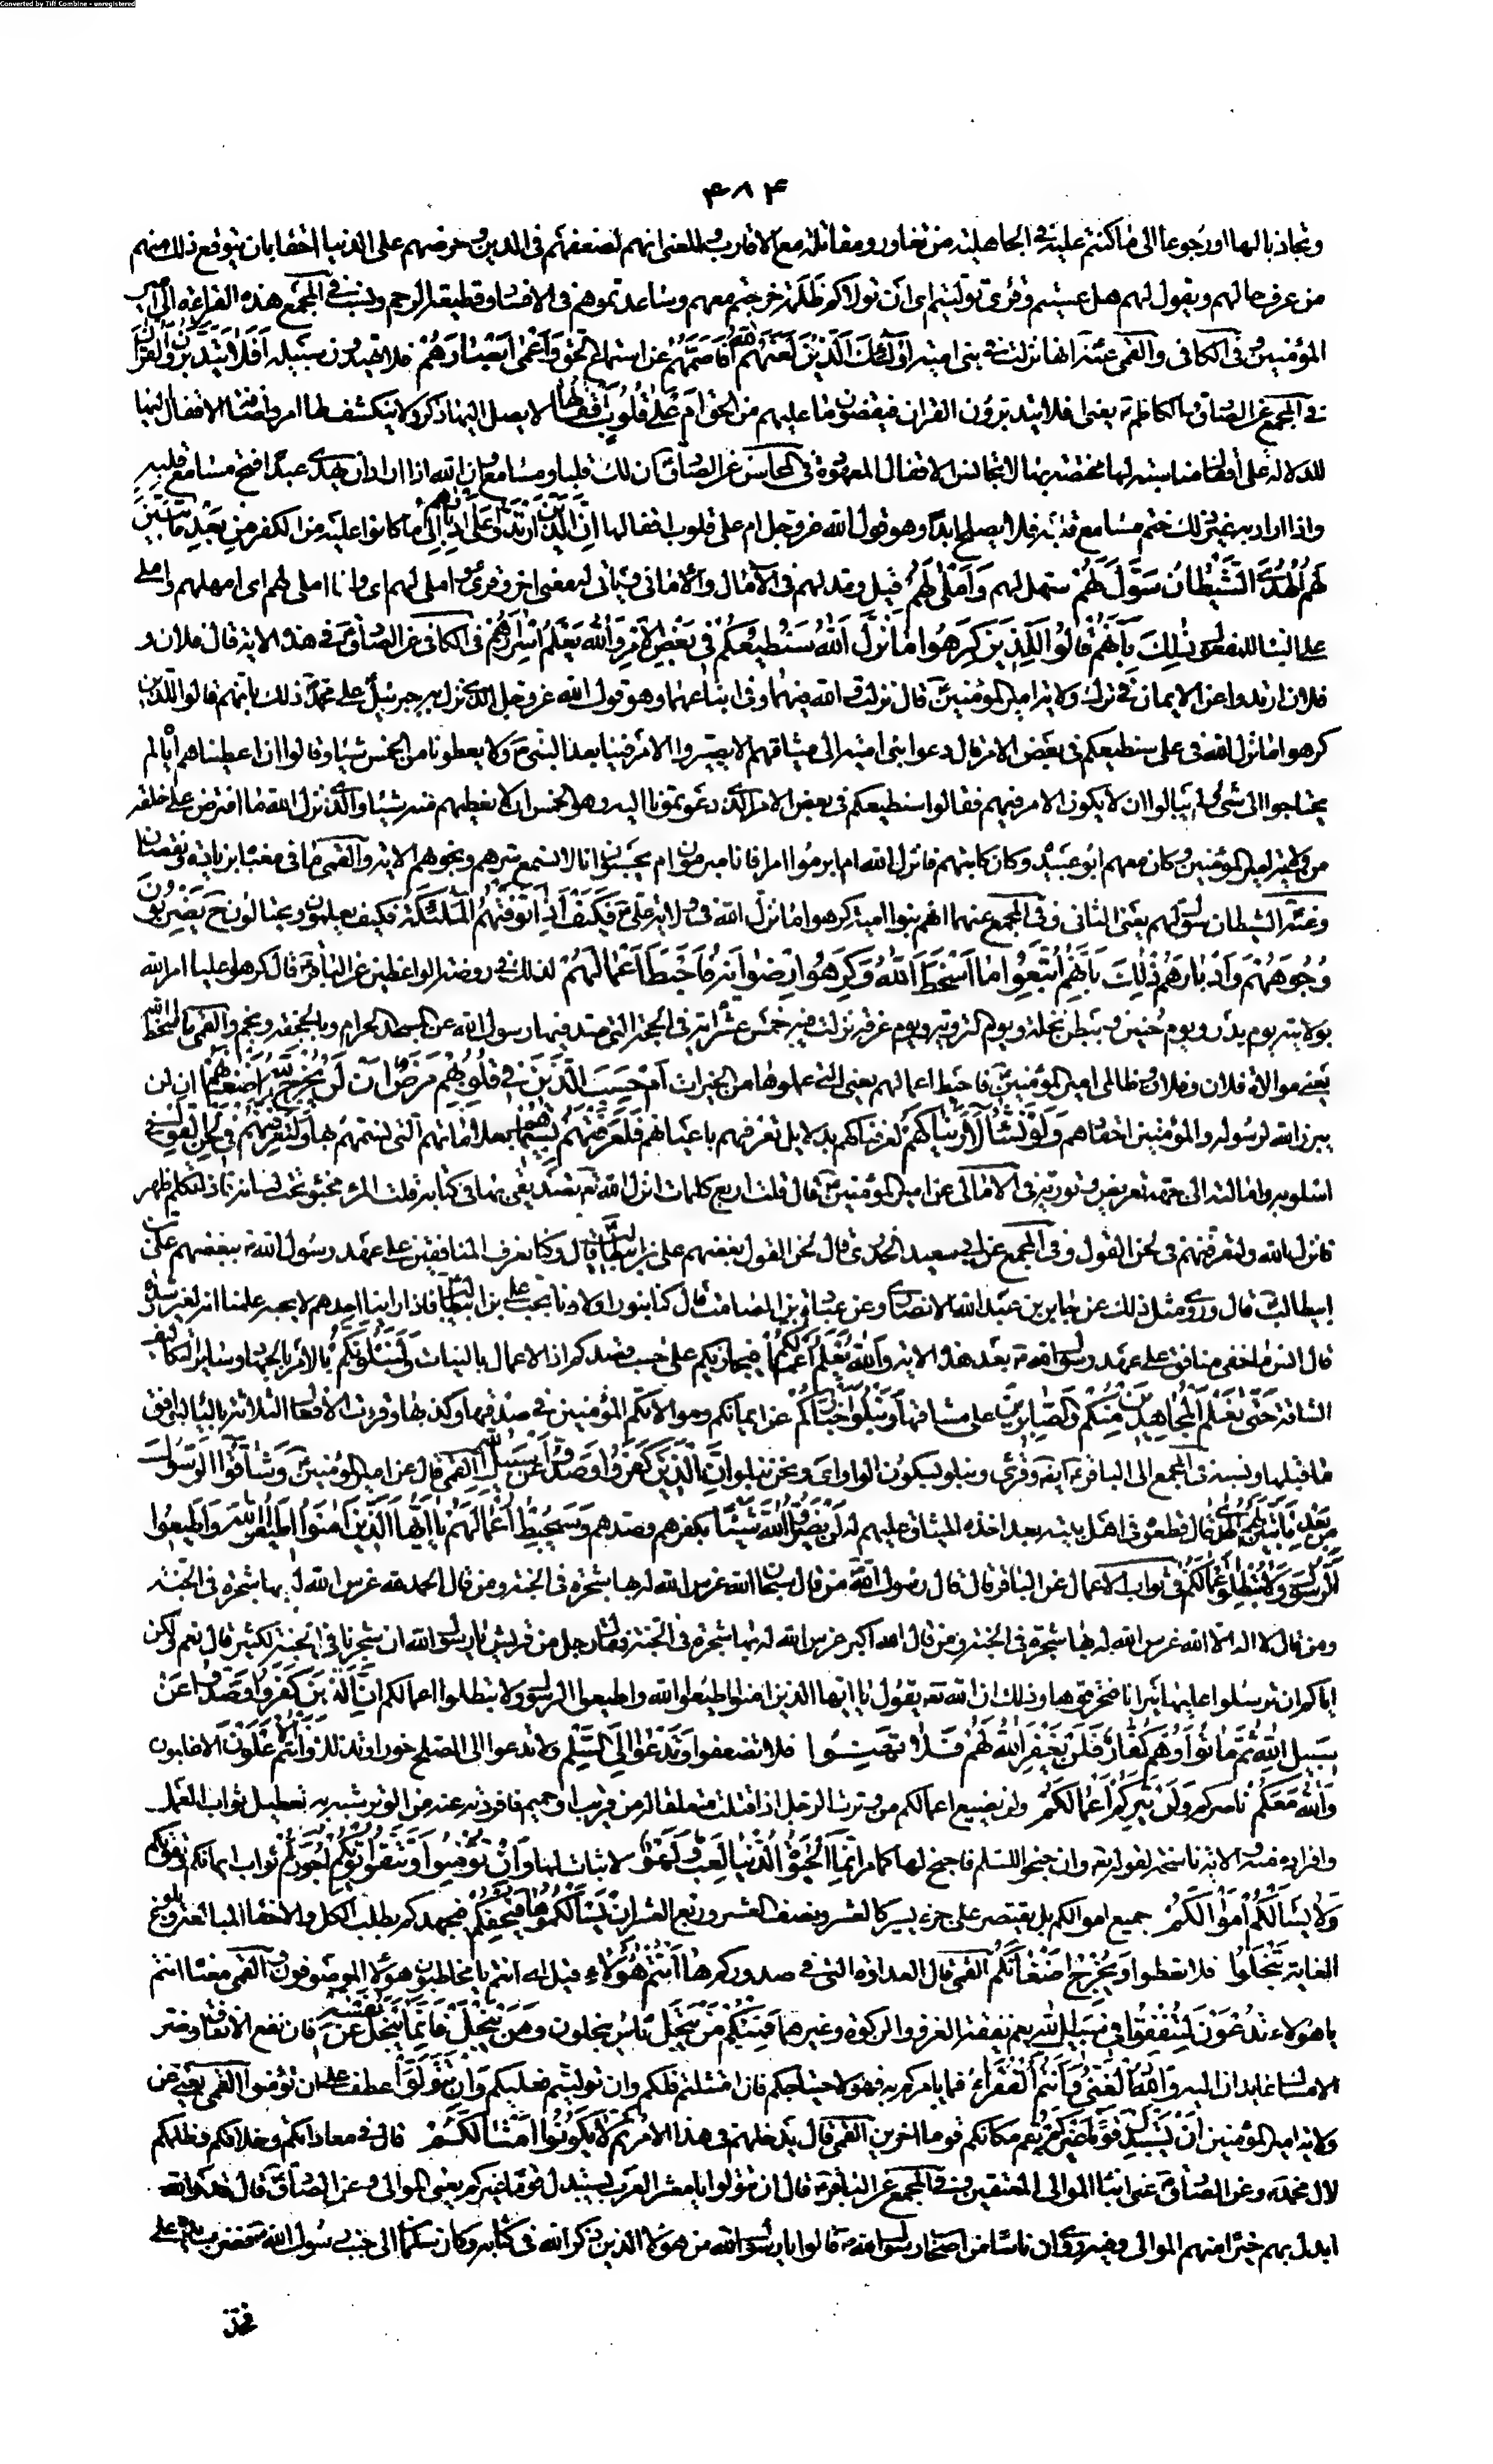 Converted by Tiff Combine - unregistered
۴۸۴
وتجاذبا لها او رجوعا الى ما كنتم عليه فى الجاهلية من تغاور ومقاتلة مع الاقارب والمعنى انهم لضعفهم فى الدين وحرصهم على الدنيا احقا بان يتوقع ذلك منهم
من عرف حالهم ويقول لهم هل عسيتم وقرئ توليتم اى ان تولاكم ظلمة خرجتم معهم وساعدتموهم فى الافساد وقطيعة الرحم ونسب فى المجمع هذه القراءة الى امير
المؤمنين وفى الكافى والقمى عنه انها نزلت فى بنى امية اولئك الذين لعنهم الله فاصمهم عن استماع الحق واعمى ابصارهم فلا تهتدون سبيله افلا يتدبرون القران
فى المجمع عن الصادق والكاظم يعنى افلا يتدبرون القران فيقضون ما عليهم من الحق ام على قلوب اقفالها لا يصل اليها ذكر ولا ينكشف لها امر واضافة الاقفال اليها
للدلالة على اقفال مناسبة لها مختصة بها لا تجانس الاقفال المعهودة فى المحاسن عن الصادق ان لك قلبا ومسامع وان الله اذا اراد ان يهدى عبدا فتح مسامع قلبه
واذا اراد به غير ذلك ختم مسامع قلبه فلا يصلح ابدا وهو قول الله عز وجل ام على قلوب اقفالها ان الذين ارتدوا على ادبارهم الى ما كانوا عليه من الكفر من بعد ما تبين
لهم الهدى الشيطان سول لهم سهل لهم واملى لهم قيل ومد لهم فى الآمال والامانى ويأتى له معنى اخر وقرئ واملى لهم اى وانا املى لهم اى امهلهم واملى
على البناء للمفعول ذلك بانهم قالوا للذين كرهوا ما نزل الله سنطيعكم فى بعض الامر والله يعلم اسرارهم فى الكافى عن الصادق فى هذه الاية قال فلان و
فلان ارتدوا عن الايمان فى ترك ولاية امير المؤمنين قال نزلت والله فيهما وفى اتباعهما وهو قول الله عز وجل الذى نزل به جبرئيل على محمد ذلك بانهم قالوا للذين
كرهوا ما نزل الله فى على سنطيعكم فى بعض الامر قال دعوا بنى امية الى ميثاقهم الا يصيروا الامر فينا بعد النبى ولا يعطونا من الخمس شيئا وقالوا ان اعطيناهم اياه لم
يحتاجوا الى شئ ولم يبالوا ان لا يكون الامر فيهم فقالوا سنطيعكم فى بعض الامر الذى دعوتمونا اليه وهو الخمس ان لا نعطيهم منه شيئا والذى نزل الله ما افترض على خلقه
من ولاية امير المؤمنين وكان معهم ابو عبيدة وكان كاتبهم فانزل الله ام ابرموا امرا فانا مبرمون ام يحسبون انا لا نسمع سرهم ونجويهم الاية والقمى ما فى معناه بزيادة ونقصان
وعنه الشيطان سول لهم يعنى الثانى وفى المجمع عنهما انهم بنوا امية كرهوا ما نزل الله فى ولاية على فكيف اذا توفتهم الملئكة فكيف يعملون ويحتالون ح يضربون
وجوههم وادبارهم ذلك بانهم اتبعوا ما اسخط الله وكرهوا رضوانه فاحبط اعمالهم لذلك فى روضة الواعظين عن الباقر قال كرهوا عليا امر الله
بولايته يوم بدر ويوم حنين وببطن نخلة ويوم التروية ويوم عرفة نزلت فيه خمس عشرة اية فى الحجة التى صد فيها رسول الله عن المسجد الحرام وبالجحفة وبخم والقمى ما اسخط الله
يعنى موالاة فلان وفلان ظالمى امير المؤمنين فاحبط اعمالهم يعنى التى عملوها من الخيرات ام حسب الذين فى قلوبهم مرض ان لن يخرج الله اضغانهم ان لن
يبرز الله لرسوله والمؤمنين احقادهم ولو نشاء لاريناكهم لعرفناكهم بدلايل تعرفهم باعيانهم فلعرفتهم بسيماهم بعلاماتهم التى نسمهم بها ولتعرفنهم فى لحن القول فى
اسلوبه وامالته الى جهة تعريض وتورية فى الامالى عن امير المؤمنين قال قلت اربع كلمات انزل الله تعالى تصديقى بها فى كتابه قلت المرء مخبو تحت لسانه فاذا تكلم ظهر
فانزل الله ولتعرفنهم فى لحن القول وفى المجمع عن ابى سعيد الخدرى قال لحن القول بغضهم على بن ابيطالب قال وكنا نعرف المنافقين على عهد رسول الله ببغضهم على بن
ابيطالب قال وروى مثل ذلك عن جابر بن عبد الله الانصارى وعن عبادة بن الصامت قال كنا نبور اولادنا بحب على بن ابيطالب فاذا راينا احدهم لا يحبه علمنا انه لغير رشده
قال انس ما خفى منافق على عهد رسول الله بعد هذه الاية والله يعلم اعمالكم فيجازيكم على حسب قصدكم اذ الاعمال بالنيات ولنبلونكم بالامر بالجهاد وساير التكاليف
الشاقة حتى نعلم المجاهدين منكم والصابرين على مشاقها ونبلوا اخباركم عن ايمانكم وموالاتكم المؤمنين فى صدقها وكذبها وقرئت الافعال الثلاثة بالياء ليوافق
ما قبلها ونسبه فى المجمع الى الباقر ايضا وقرئ ونبلو بسكون الواو اى ونحن نبلو ان الذين كفروا وصدوا عن سبيل الله القمى قال عن امير المؤمنين وشاقوا الرسول
من بعد ما تبين لهم الهدى قال قطعوه فى اهل بيته بعد اخذه الميثاق عليهم له لن يضروا الله شيئا بكفرهم وصدهم وسيحبط اعمالهم يا ايها الذين امنوا اطيعوا الله واطيعوا
الرسول ولا تبطلوا اعمالكم فى ثواب الاعمال عن الباقر قال قال رسول الله من قال سبحان الله غرس الله له بها شجرة فى الجنة ومن قال الحمد لله غرس الله له بها شجرة فى الجنة
ومن قال لا اله الا الله غرس الله له بها شجرة فى الجنة ومن قال الله اكبر غرس الله له بها شجرة فى الجنة فقال رجل من قريش يا رسول الله ان شجرنا فى الجنة لكثير قال نعم ولكن
اياكم ان ترسلوا عليها نيرانا فتحرقوها وذلك ان الله تعالى يقول يا ايها الذين امنوا اطيعوا الله واطيعوا الرسول ولا تبطلوا اعمالكم ان الذين كفروا وصدوا عن
سبيل الله ثم ماتوا وهم كفار فلن يغفر الله لهم فلا تهنوا فلا تضعفوا وتدعوا الى السلم ولا تدعوا الى الصلح خورا وتذللا وانتم الاعلون الاغلبون
والله معكم ناصركم ولن يتركم اعمالكم ولن يضيع اعمالكم من وترت الرجل اذا قتلت متعلقا له من قريب او حميم فافردته عنه من الوتر شبه به تعطيل ثواب العمل
وافراده منه والاية ناسخة لقوله تعالى وان جنحوا للسلم فاجنح لها كما مر انما الحيوة الدنيا لعب ولهو لا ثبات لها وان تؤمنوا وتتقوا يؤتكم اجوركم ثواب ايمانكم وتقويكم
ولا يسألكم اموالكم جميع اموالكم بل يقتصر على جزء يسير كالعشر ونصف العشر وربع العشر ان يسألكموها فيحفكم فيجهدكم بطلب الكل والاحفاء المبالغة وبلوغ
الغاية تبخلوا فلا تعطوا ويخرج اضغانكم القمى قال العداوة التى فى صدوركم ها انتم هؤلاء قيل اى انتم يا مخاطبون هؤلاء الموصوفون والقمى معناه انتم
يا هؤلاء تدعون لتنفقوا فى سبيل الله يعم نفقة الغزو والزكوة وغيرهما فمنكم من يبخل ناس يبخلون ومن يبخل فانما يبخل عن نفسه فان نفع الانفاق وضر
الامساك عايدان اليه والله الغنى وانتم الفقراء فما يأمركم به فهو لاحتياجكم فان امتثلتم فلكم وان توليتم فعليكم وان تتولوا عطف على ان تؤمنوا القمى يعنى عن
ولاية امير المؤمنين ان يستبدل قوما غيركم يقم مكانكم قوما اخرين القمى قال يدخلهم فى هذا الامر ثم لا يكونوا امثالكم قال فى معاداتكم وخلافكم وظلمكم
لال محمد وعن الصادق عنى ابناء الموالى المعتقين وفى المجمع عن الباقر قال ان تتولوا يا معشر العرب يستبدل قوما غيركم يعنى الموالى وعن الصادق قال قد والله
ابدل بهم خيرا منهم الموالى وفيه روى ان ناسا من اصحاب رسول الله قالوا يا رسول الله من هؤلاء الذين ذكر الله فى كتابه وكان سلمان الى جنب رسول الله فضرب بيده على
فخذ